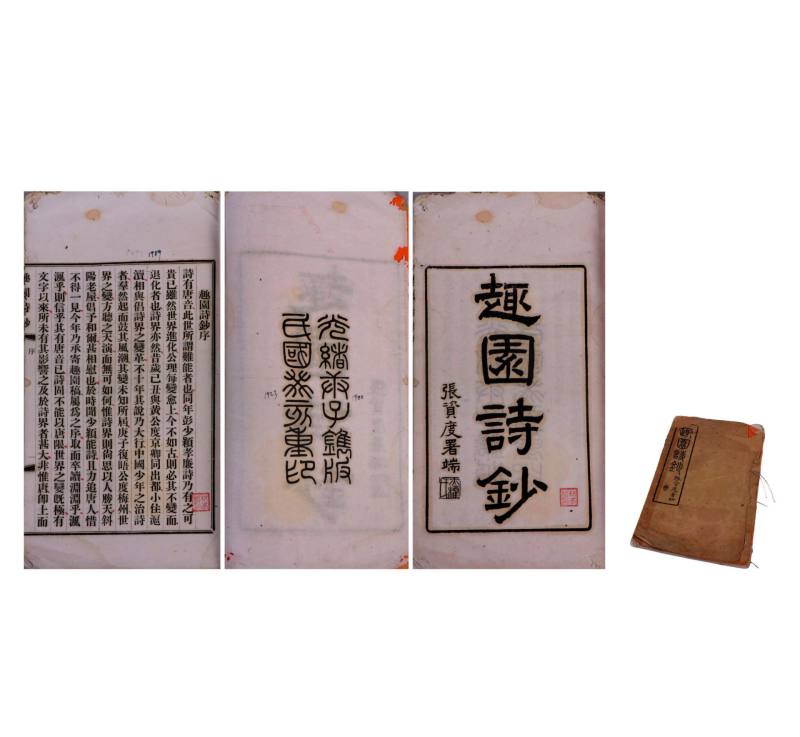 趣園詩鈔
張資度署端
光緒庚子鐫版
民國癸亥重印
1900
1923
趣園詩鈔序
詩有唐音此世所謂難能者也同年彭少穎孝廉詩乃有之可
貴已雖然世界進化公理每變愈上今不如古則必其不變而
退化者也詩界亦然昔歲己丑與黃公度京卿同出都小住滬
瀆相與倡詩界之變革不十年其說乃大行中國少年之治詩
者羣然起而鼓其風潮其變未知所屆庚子復晤公度梅州世
界之變方聽之天演而無可如何惟詩界則尚思以人勝天斜
陽老屋倡予和爾甚相慰也於時聞少穎能詩且力追唐人惜
不得一見今年乃承寄趣園稿屬爲之序取而卒讀淵淵乎渢
渢乎則信乎其有唐音已詩固不能以唐限世界之變既極有
文字以來所未有其影響之及於詩界者甚大非惟唐卽上而
趣園詩鈔
序
趣園詩鈔